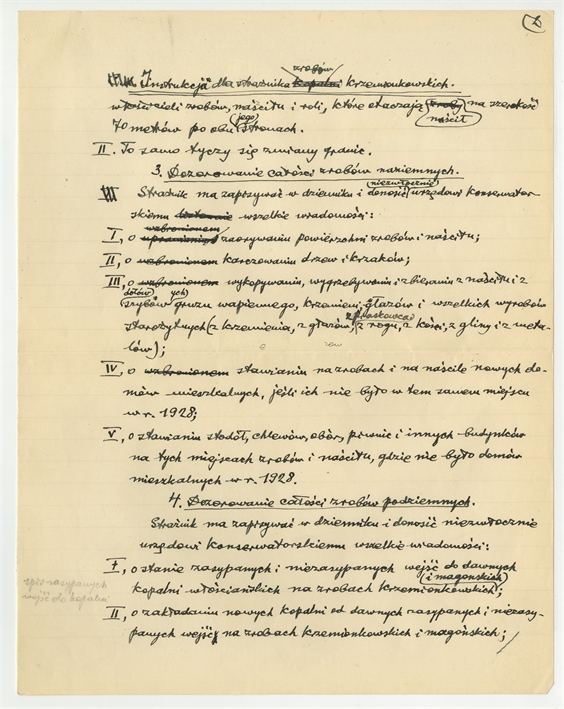 2
Instrukcja dla strażnika kopalni zrobów krzemionkowskich.
właścicieli zrobów, naściłu i roli, które otaczają zroby naścił na szerokość
70 metrów po obu jego stronach.
II. To samo tyczy się zmiany granic.
3. Dozorowanie całości zrobów naziemnych.
III Strażnik ma zapisywać w dzienniku i donosić niezwłocznie urzędowi konserwator-
skiemu wszelkie wiadomości:
I, o wzbronionem zaorywaniu powierzchni zrobów i naściłu;
II, o wzbronionem karczowaniu drzew i krzaków;
III, o wzbronionem wykopywaniu, wygrzebywaniu i zbieraniu z naściłu i z
szybów gruzu wapiennego, krzemieni, głazów i wszelkich wyrobów
starożytnych (z krzemienia, z głazów, z piaskowca, z rogu, z kości, z gliny i z meta-
lów);
IV, o wzbronionem stawianiu na zrobach i na naścile nowych do-
mów mieszkalnych, jeśli ich nie było w tem samem miejscu
w r. 1928;
V, o stawianiu stodół, chlewów, obór, piwnic i innych budynków
na tych miejscach zrobów i naściłu, gdzie nie było domów
mieszkalnych w r. 1928.
4. Dozorowanie całości zrobów podziemnych.
Strażnik ma zapisywać w dzienniku i donosić niezwłocznie
urzędowi konserwatorskiemu wszelkie wiadomości:
I, o stanie zasypanych i niezasypanych wejść do dawnych
kopalni włościańskich na zrobach krzemionkowskich i magońskich;
spis zasypanych
wejść do kopalni
II, o zakładaniu nowych kopalni od dawnych zasypanych i niezasy-
panych wejść na zrobach krzemionkowskich i magońskich;